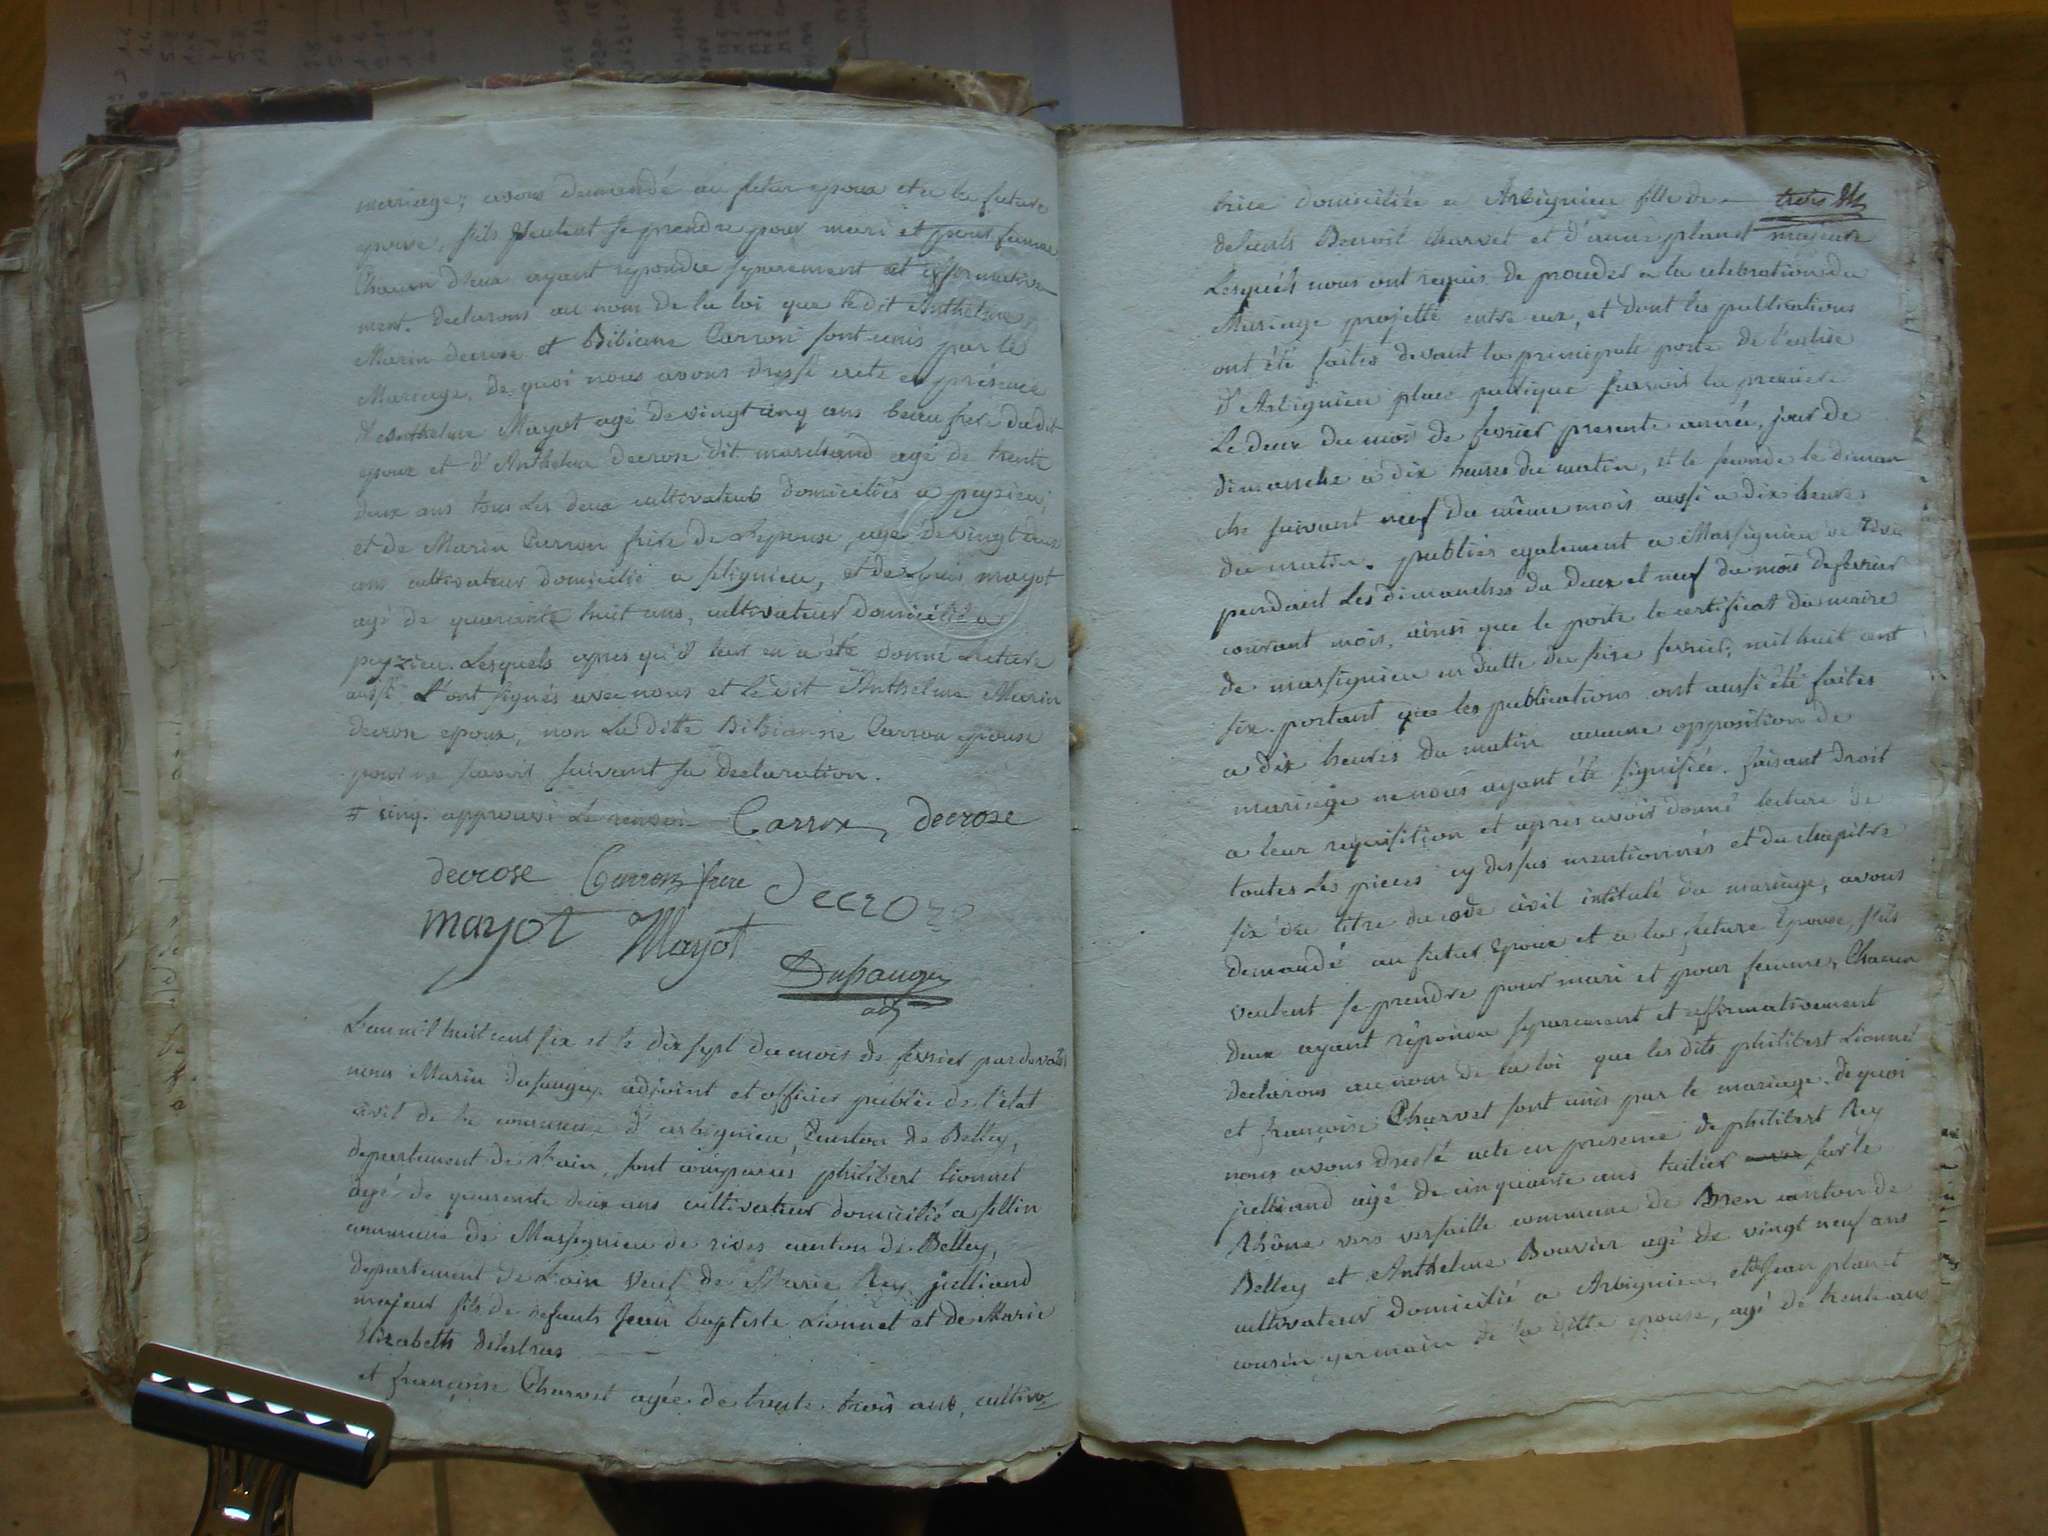 mariage; avons demandé au futur epoux et a la future
epouse, s'ils veulent se prendre pour mari et pour femme
Chacun d'eux ayant repondu separement et affirmative
ment. declarons au nom de la loi que le dit Anthelme
Marin decrose et Bibiane Carron sont unis par le
Mariage, de quoi nous avons dressé acte en présence
d'Anthelme Mayot agé de vingt cinq ans beau frere du dit
epoux et d'Anthelme decrose dit marchand agé de trente
deux ans tous les deux cultivateurs domiciliés a peyzieu,
et de Marin Carron frere de l'epouse, agé de vingt deux
ans cultivateur domicilié a seligneu, et de Louis mayot
agé de quarante huit ans, cultivateur domicilié a
peyzieu. Lesquels apres qu'il leur en a été donné lecture
aussi l'ont signés avec nous et le dit Anthelme Marin
decrose epoux, non la ditte Bibianne Carron epouse
pour ne savoir suivant sa declaration.
# cinq. approuvé le renvoi Carron decrose
decrose Carron frere Decroze
mayot Mayot
Dufauger
adj
L'an mil huit cent six et le dix sept du mois de fevrier pardevant
nous Marin dufauger adjoint et officier public de l'état
civil de la commune d'arbignieu, Canton de Belley,
departement de l'ain, sont comparus philibert Lionnet
agé de quarente deux ans cultivateur domicilié a sillin
commune de Massignieu de rives canton de Belley,
departement de L'ain veuf de Marie Rey juilliand
majeur fils de defunts Jean baptiste Lionnet et de Marie
Elizabeth
et françoise Charvet agée de trente trois ans, cultiva
trice domiciliée a Arbignieu fille de trois
defunts Benoit Charvet et d'anne planet majeure
Lesquels nous ont requis de proceder a la celebration du
Mariage projetté entre eux, et dont les publications
ont été faites devant la principale porte de l'eglise
d'Arbignieu place publique savoir la premiere
Le deux du mois de fevrier presente année, jour de
dimanche a dix heures du matin, et le seconde le diman
che suivant neuf du même mois aussi a dix heures
du matin. publiés egalement a Massignieu de Rives
pendant Les dimanches du deux et neuf du mois de fevrier
courant mois, ainsi que le porte le certificat du maire
de massignieu en datte du seize fevrier, mil huit cent
six. portant que les publications ont aussi été faites
a dix heures du matin aucune opposition de
mariage ne nous ayant été signifiée. faisant droit
a leur requisition et apres avoir donné lecture de
toutes Les pieces cy dessus mentionnés et du chapitre
six du titre du code civil intitulé du mariage, avons
demandé au futur Epoux et a la future Epouse, s'ils
veulent se prendre pour mari et pour femme, Chacun
deux ayant repondu separement et affirmativement
declarons au nom de la loi que les dits philibert Lionnet
et françoise Charvet sont unis par le mariage. de quoi
nous avons dressé acte en presence de philibert Rey
juilliand agé de cinquante ans sur le
Rhône vers versaille commune de Bren canton de
Belley et Anthelme Bouvier agé de vingt neuf ans
cultivateur domicilié a Arbignieu, et de Jean planet
cousin germain de la ditte epouse, agé de trente ans